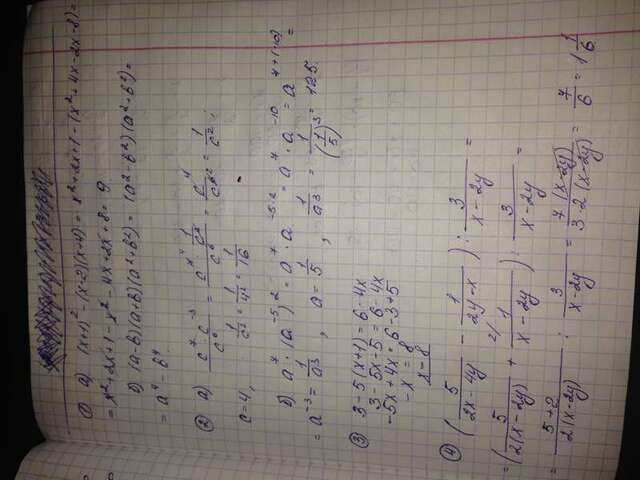 ① а) (x+1)² - (x-2)(x+4) = x²+2x+1 - (x²+4x-2x-8) =
= x²+2x+1-x²-4x+2x+8 = 9
б) (a-b)(a+b)(a²+b²) = (a²-b²)(a²+b²) =
= a⁴-b⁴.
② а) c⁷·c⁻³/c⁶ = c⁷·1/c³/c⁶ = c⁴/c⁶ = 1/c²;
c=4, 1/c² = 1/4² = 1/16
б) a⁷·(a⁻⁵)² = a⁷·a⁻⁵·² = a⁷·a⁻¹⁰ = a⁷⁺⁽⁻¹⁰⁾ =
= a⁻³ = 1/a³, a = 1/5, 1/a³ = 1/(1/5)³ = 125.
③ 3-5(x+1) = 6-4x
3-5x-5 = 6-4x
-5x+4x = 6-3+5
-x = 8
x-8
④ (5/(2x-4y) - 1/(2y-x)) : 3/(x-2y) =
= (5/(2(x-2y)) + ²⁾1/(x-2y)) : 3/(x-2y) =
= (5+2)/(2(x-2y)) : 3/(x-2y) = 7(x-2y)/(3·2(x-2y)) = 7/6 = 1 1/6